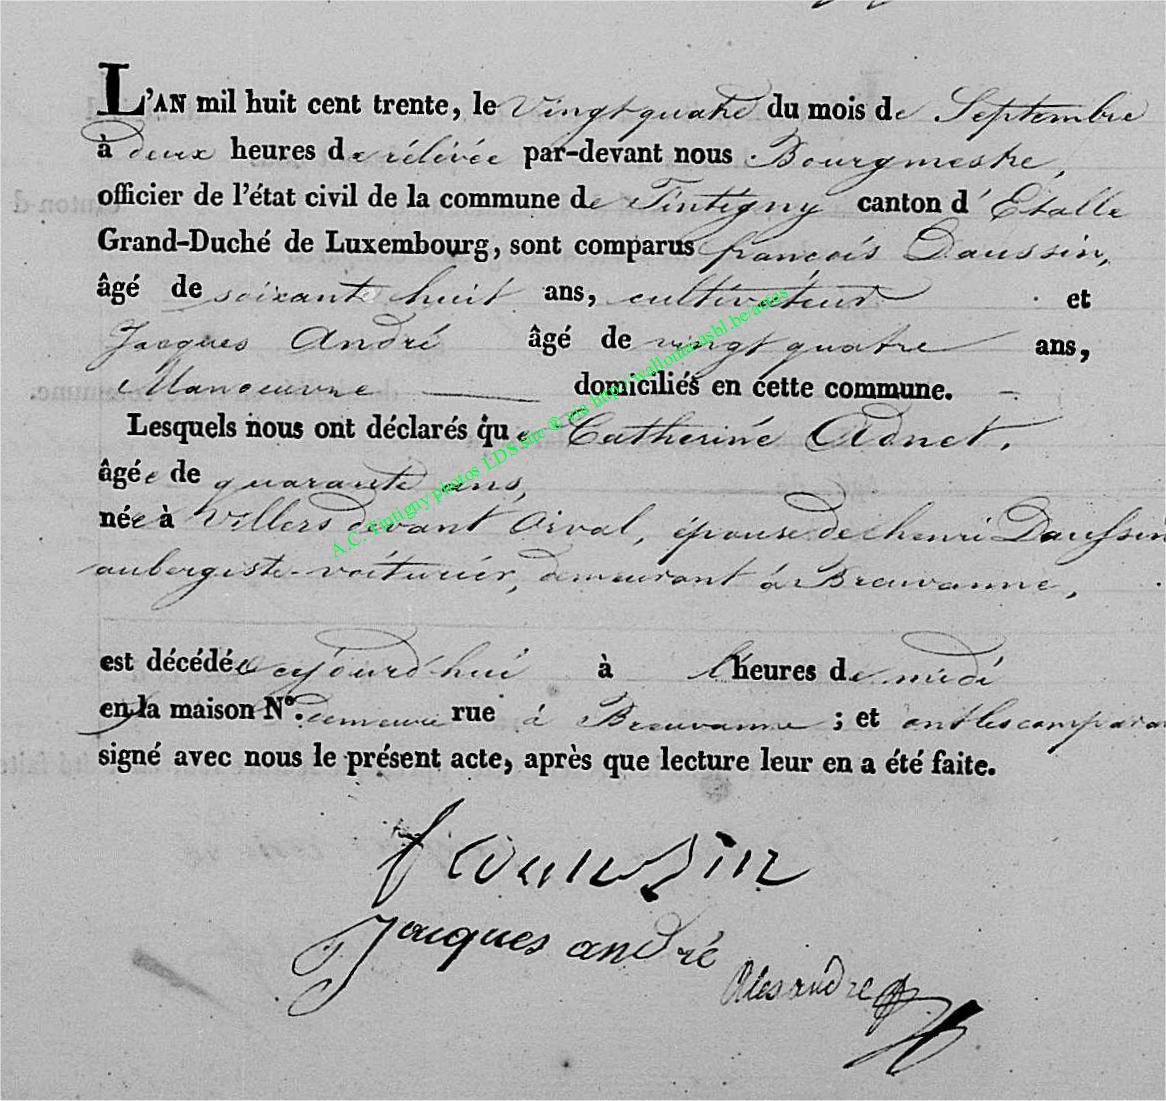 L'AN mil huit cent trente, le vingt quatre du mois de Septembre
à deux heures de rélévée par-devant nous Bourgmestre,
officier de l'état civil de la commune de Tintigny canton d'Etalle
Grand-Duché de Luxembourg, sont comparus françois Daussin,
âgé de soixante huit ans, cultivateur et
Jacques André âgé de vingt quatre ans,
Manoeuvre domiciliés en cette commune.
Lesquels nous ont déclarés que Catherine Adnet,
âgée de quarante ans,
née à Villers devant Orval, épouse de henri Daussin
aubergiste-voiturier, demeurant à Breuvanne,
est décédée aujourd'hui à heures de midi
en la maison N°. demeure rue à Breuvanne ; et ont les compara
signé avec nous le présent acte, après que lecture leur en a été faite.
Jacques andré
A.C. Tintigny photos LDS strc © via http://wallonia-asbl.be/actes